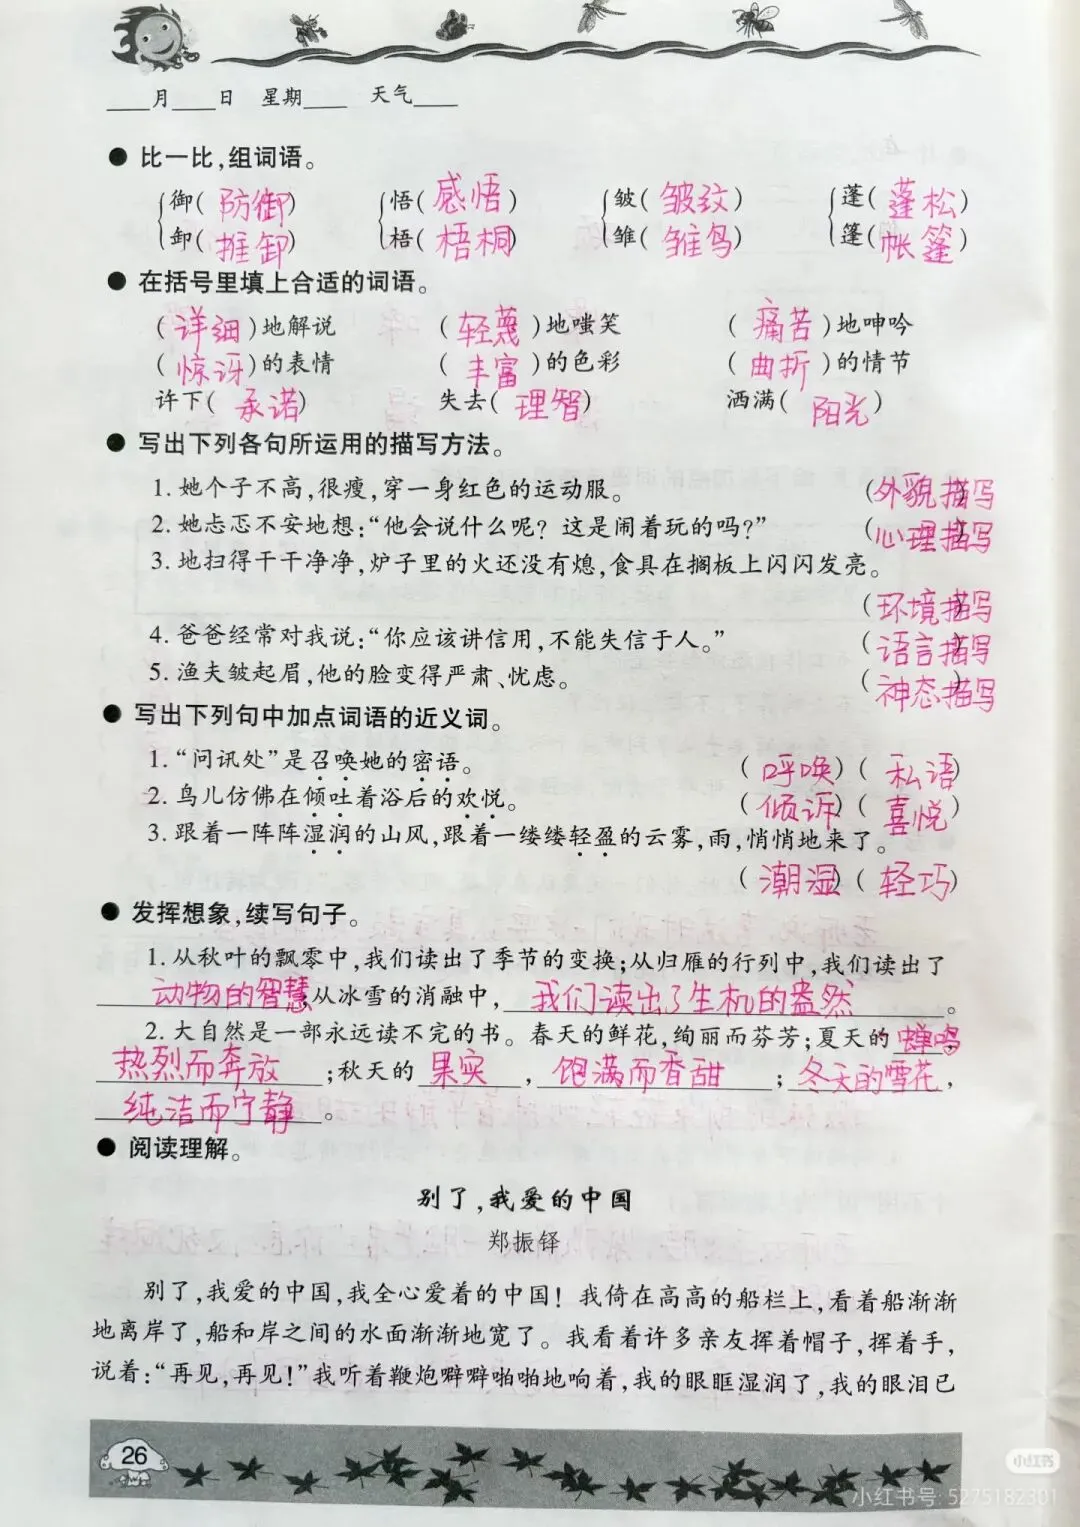 ____月____日 星期____ 天气____
● 比一比,组词语。
御( 防御 ) 悟( 感悟 ) 皱( 皱纹 ) 蓬( 蓬松 )
卸( 推卸 ) 梧( 梧桐 ) 雏( 雏鸟 ) 篷( 帐篷 )
● 在括号里填上合适的词语。
( 详细 )地解说 ( 轻蔑 )地嗤笑 ( 痛苦 )地呻吟
( 惊讶 )的表情 ( 丰富 )的色彩 ( 曲折 )的情节
许下( 承诺 ) 失去( 理智 ) 洒满( 阳光 )
● 写出下列各句所运用的描写方法。
1. 她个子不高,很瘦,穿一身红色的运动服。 (外貌描写)
2. 她忐忑不安地想:“他会说什么呢? 这是闹着玩的吗?” (心理描写)
3. 地扫得干干净净,炉子里的火还没有熄,食具在搁板上闪闪发亮。
(环境描写)
4. 爸爸经常对我说:“你应该讲信用,不能失信于人。” (语言描写)
5. 渔夫皱起眉,他的脸变得严肃、忧虑。 (神态描写)
● 写出下列句中加点词语的近义词。
1. “问讯处”是召唤她的密语。 ( 呼唤 ) ( 私语 )
2. 鸟儿仿佛在倾吐着浴后的欢悦。 ( 倾诉 ) ( 喜悦 )
3. 跟着一阵阵湿润的山风,跟着一缕缕轻盈的云雾,雨,悄悄地来了。
( 潮湿 ) ( 轻巧 )
● 发挥想象,续写句子。
1. 从秋叶的飘零中,我们读出了季节的变换;从归雁的行列中,我们读出了
动物的智慧;从冰雪的消融中, 我们读出了生机的盎然 。
2. 大自然是一部永远读不完的书。春天的鲜花,绚丽而芬芳;夏天的 蝉鸣,
热烈而奔放 ;秋天的 果实 , 饱满而香甜 ; 冬天的雪花 ,
纯洁而宁静 。
● 阅读理解。
别了,我爱的中国
郑振铎
别了,我爱的中国,我全心爱着的中国! 我倚在高高的船栏上,看着船渐渐
地离岸了,船和岸之间的水面渐渐地宽了。我看着许多亲友挥着帽子,挥着手,
说着:“再见,再见!”我听着鞭炮噼噼啪啪地响着,我的眼眶湿润了,我的眼泪已
26
小红书
小红书号: 5275182301